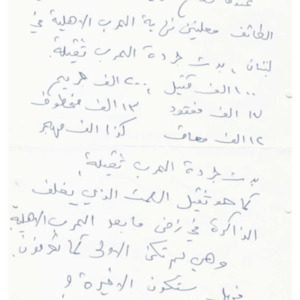 الطائف معلنين نهاية الحرب الاهلية في
لبنان، بدت جردة الحرب ثقيلة:
١٠٠ الف قتيل، ٢٠٠ الف جريح
١٧ الف مفقود ١٣ الف مخطوف
١٢ الف معاق كذا الف مهجر
بدت جردة الحرب ثقيلة،
كما هو ثقيل الصمت الذي يغلف
الذاكرة في زمن ما بعد الحرب الاهلية
وهي لم تكن الاولى كما تعرفون.
فهل ستكون الاخيرة؟